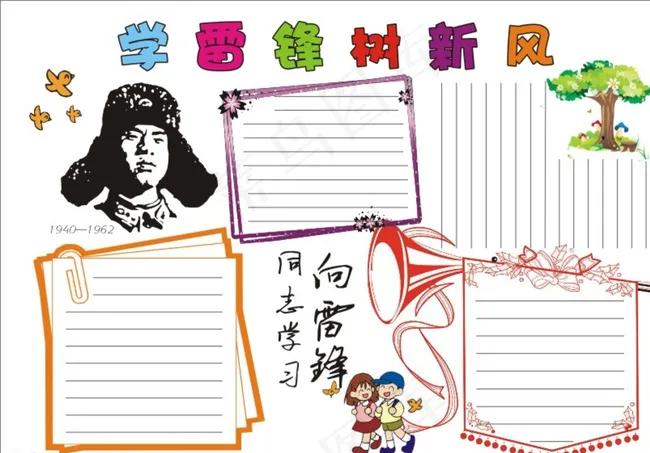 学雷锋树新风
1940—1962
向雷锋
同志学习